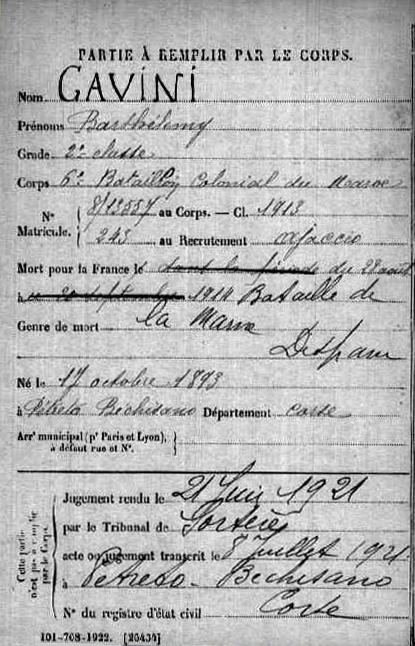 PARTIE À REMPLIR PAR LE CORPS.
Nom GAVINI
Prénoms Barthélemy
Grade 2e classe
Corps 6e Bataillon Colonial du Maroc
N° Matricule. { 8/13557 au Corps. — Cl. 1913
243 au Recrutement Ajaccio
Mort pour la France le dans la période du 22 août
au 20 septembre 1914 Bataille de
Genre de mort la Marne
Disparu
Né le 17 octobre 1893
à Pétreto Bichisano Département Corse
Arrt municipal (pr Paris et Lyon), à défaut rue et N°. }
Cette partie n'est pas à remplir par le Corps.
Jugement rendu le 21 Juin 1921
par le Tribunal de
acte ou jugement transcrit le 8 Juillet 1921
à Petreto-Bichisano
Corse
N° du registre d'état civil
101-708-1922. [26434]